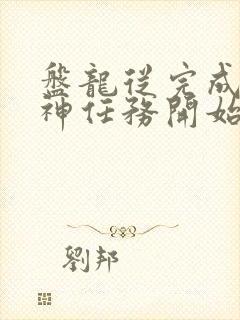 盤龍從完成
神任務開始
劉邦